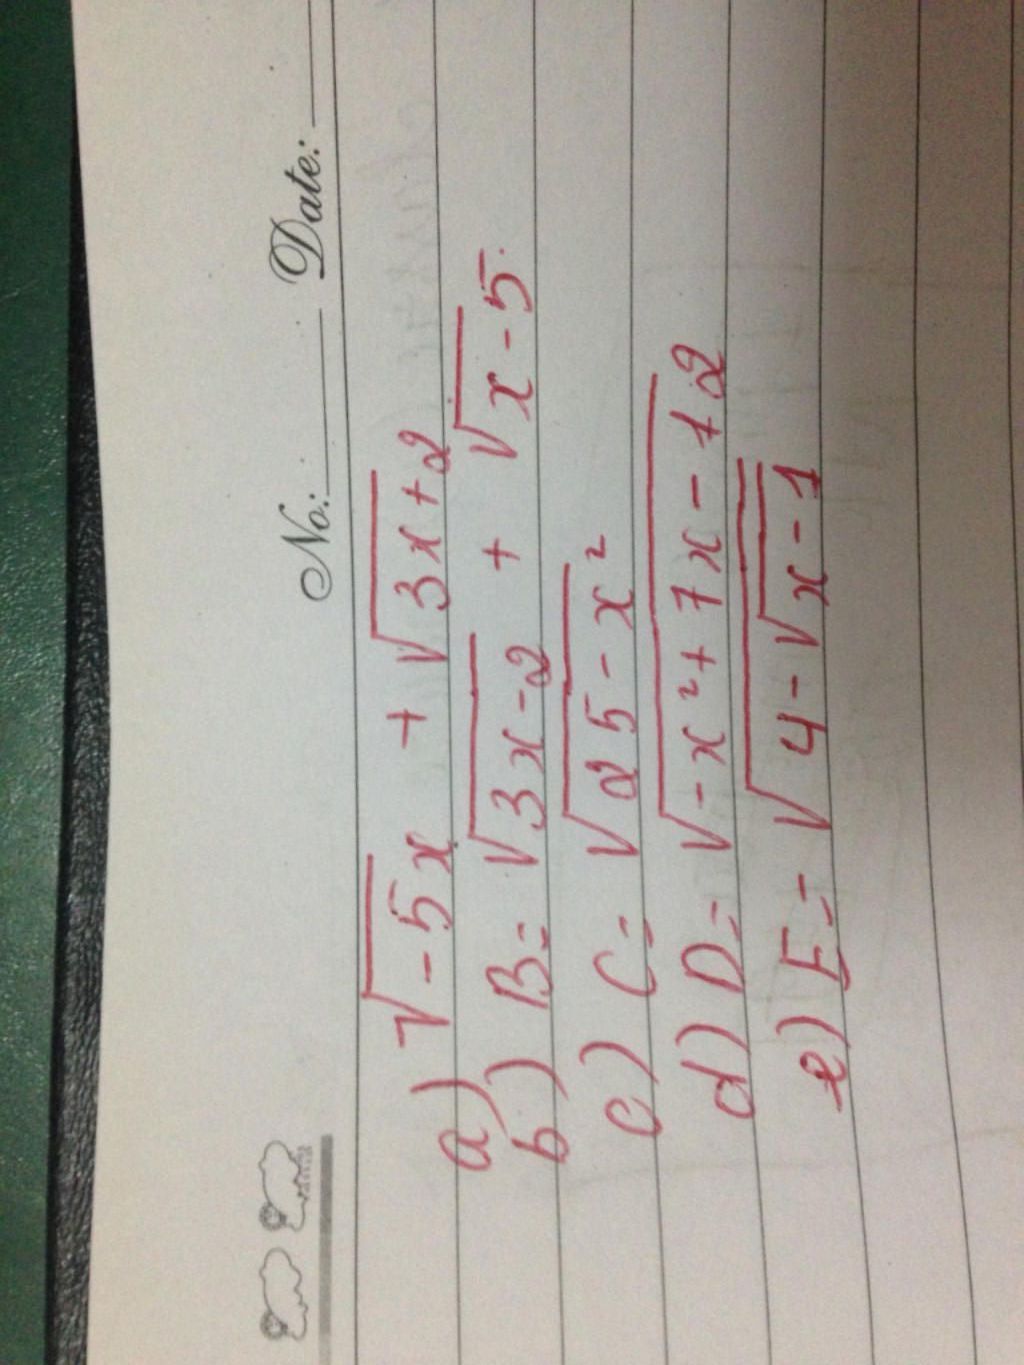 No.: Date:
a) √(-5x) + √(3x+2)
b) B = √(3x-2) + √(x-5)
c) C = √(25-x²)
d) D = √(-x²+7x-12)
e) E = √(4-√(x-1))